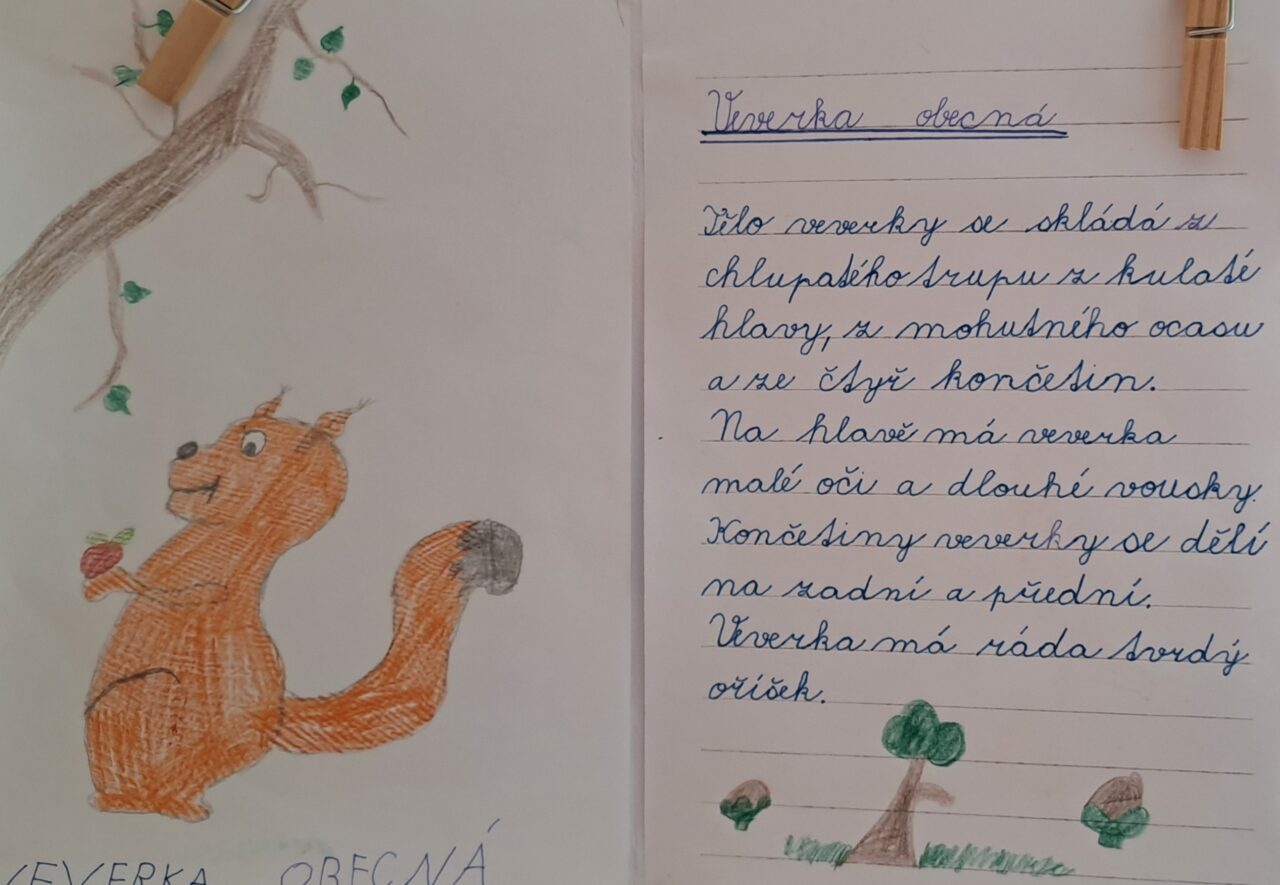 Veverka obecná
Tělo veverky se skládá z
chlupatého trupu z kulaté
hlavy, z mohutného ocasu
a ze čtyř končetin.
Na hlavě má veverka
malé oči a dlouhé vousky.
Končetiny veverky se dělí
na zadní a přední.
Veverka má ráda tvrdý
oříšek.
VEVERKA OBECNÁ